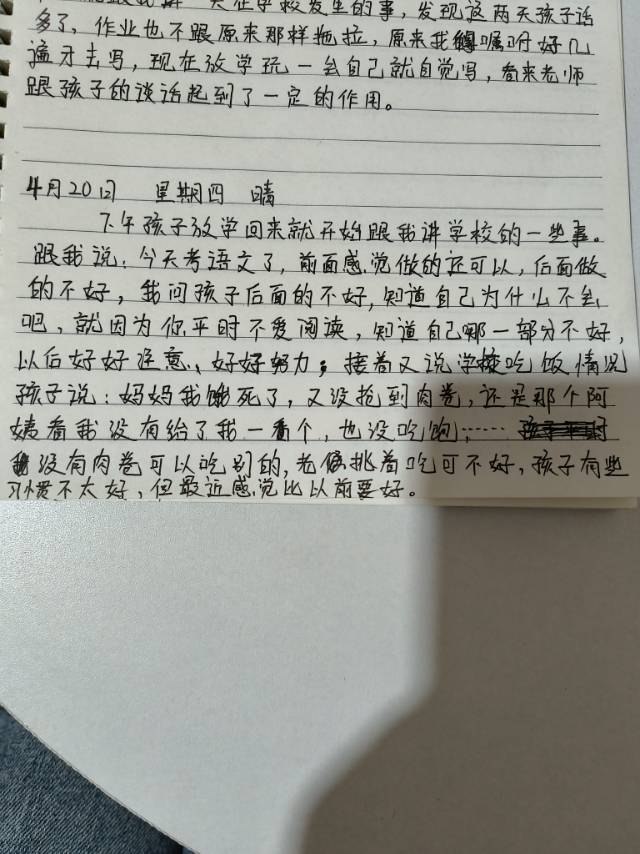 天在学校发生的事，发现这两天孩子话
多了，作业也不跟原来那样拖拉，原来我得嘱咐好几
遍才去写，现在放学玩一会自己就自觉写，看来老师
跟孩子的谈话起到了一定的作用。
4月20日 星期四 晴
下午孩子放学回来就开始跟我讲学校的一些事。
跟我说：今天考语文了，前面感觉做的还可以，后面做
的不好，我问孩子后面的不好，知道自己为什么不会
吧、就因为你平时不爱阅读，知道自己哪一部分不好，
以后好好注意、好好努力；接着又说学校吃饭情况
孩子说：妈妈我饿死了，又没抢到肉卷，还是那个阿
姨看我没有给了我一个，也没吃饱；……
没有肉卷可以吃别的，光像挑着吃可不好，孩子有些
习惯不太好，但最近感觉比以前要好。